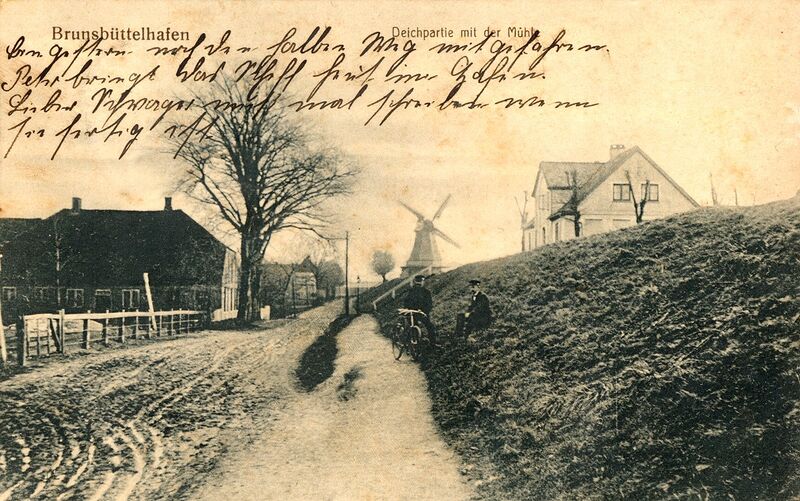 Brunsbüttelhafen
Deichpartie mit der Mühle
gestern noch den halben Weg mitgefahren.
Petr bringt das Schiff heut im Hafen.
Lieber Schwager muß mal schreiben wenn
sie fertig ist